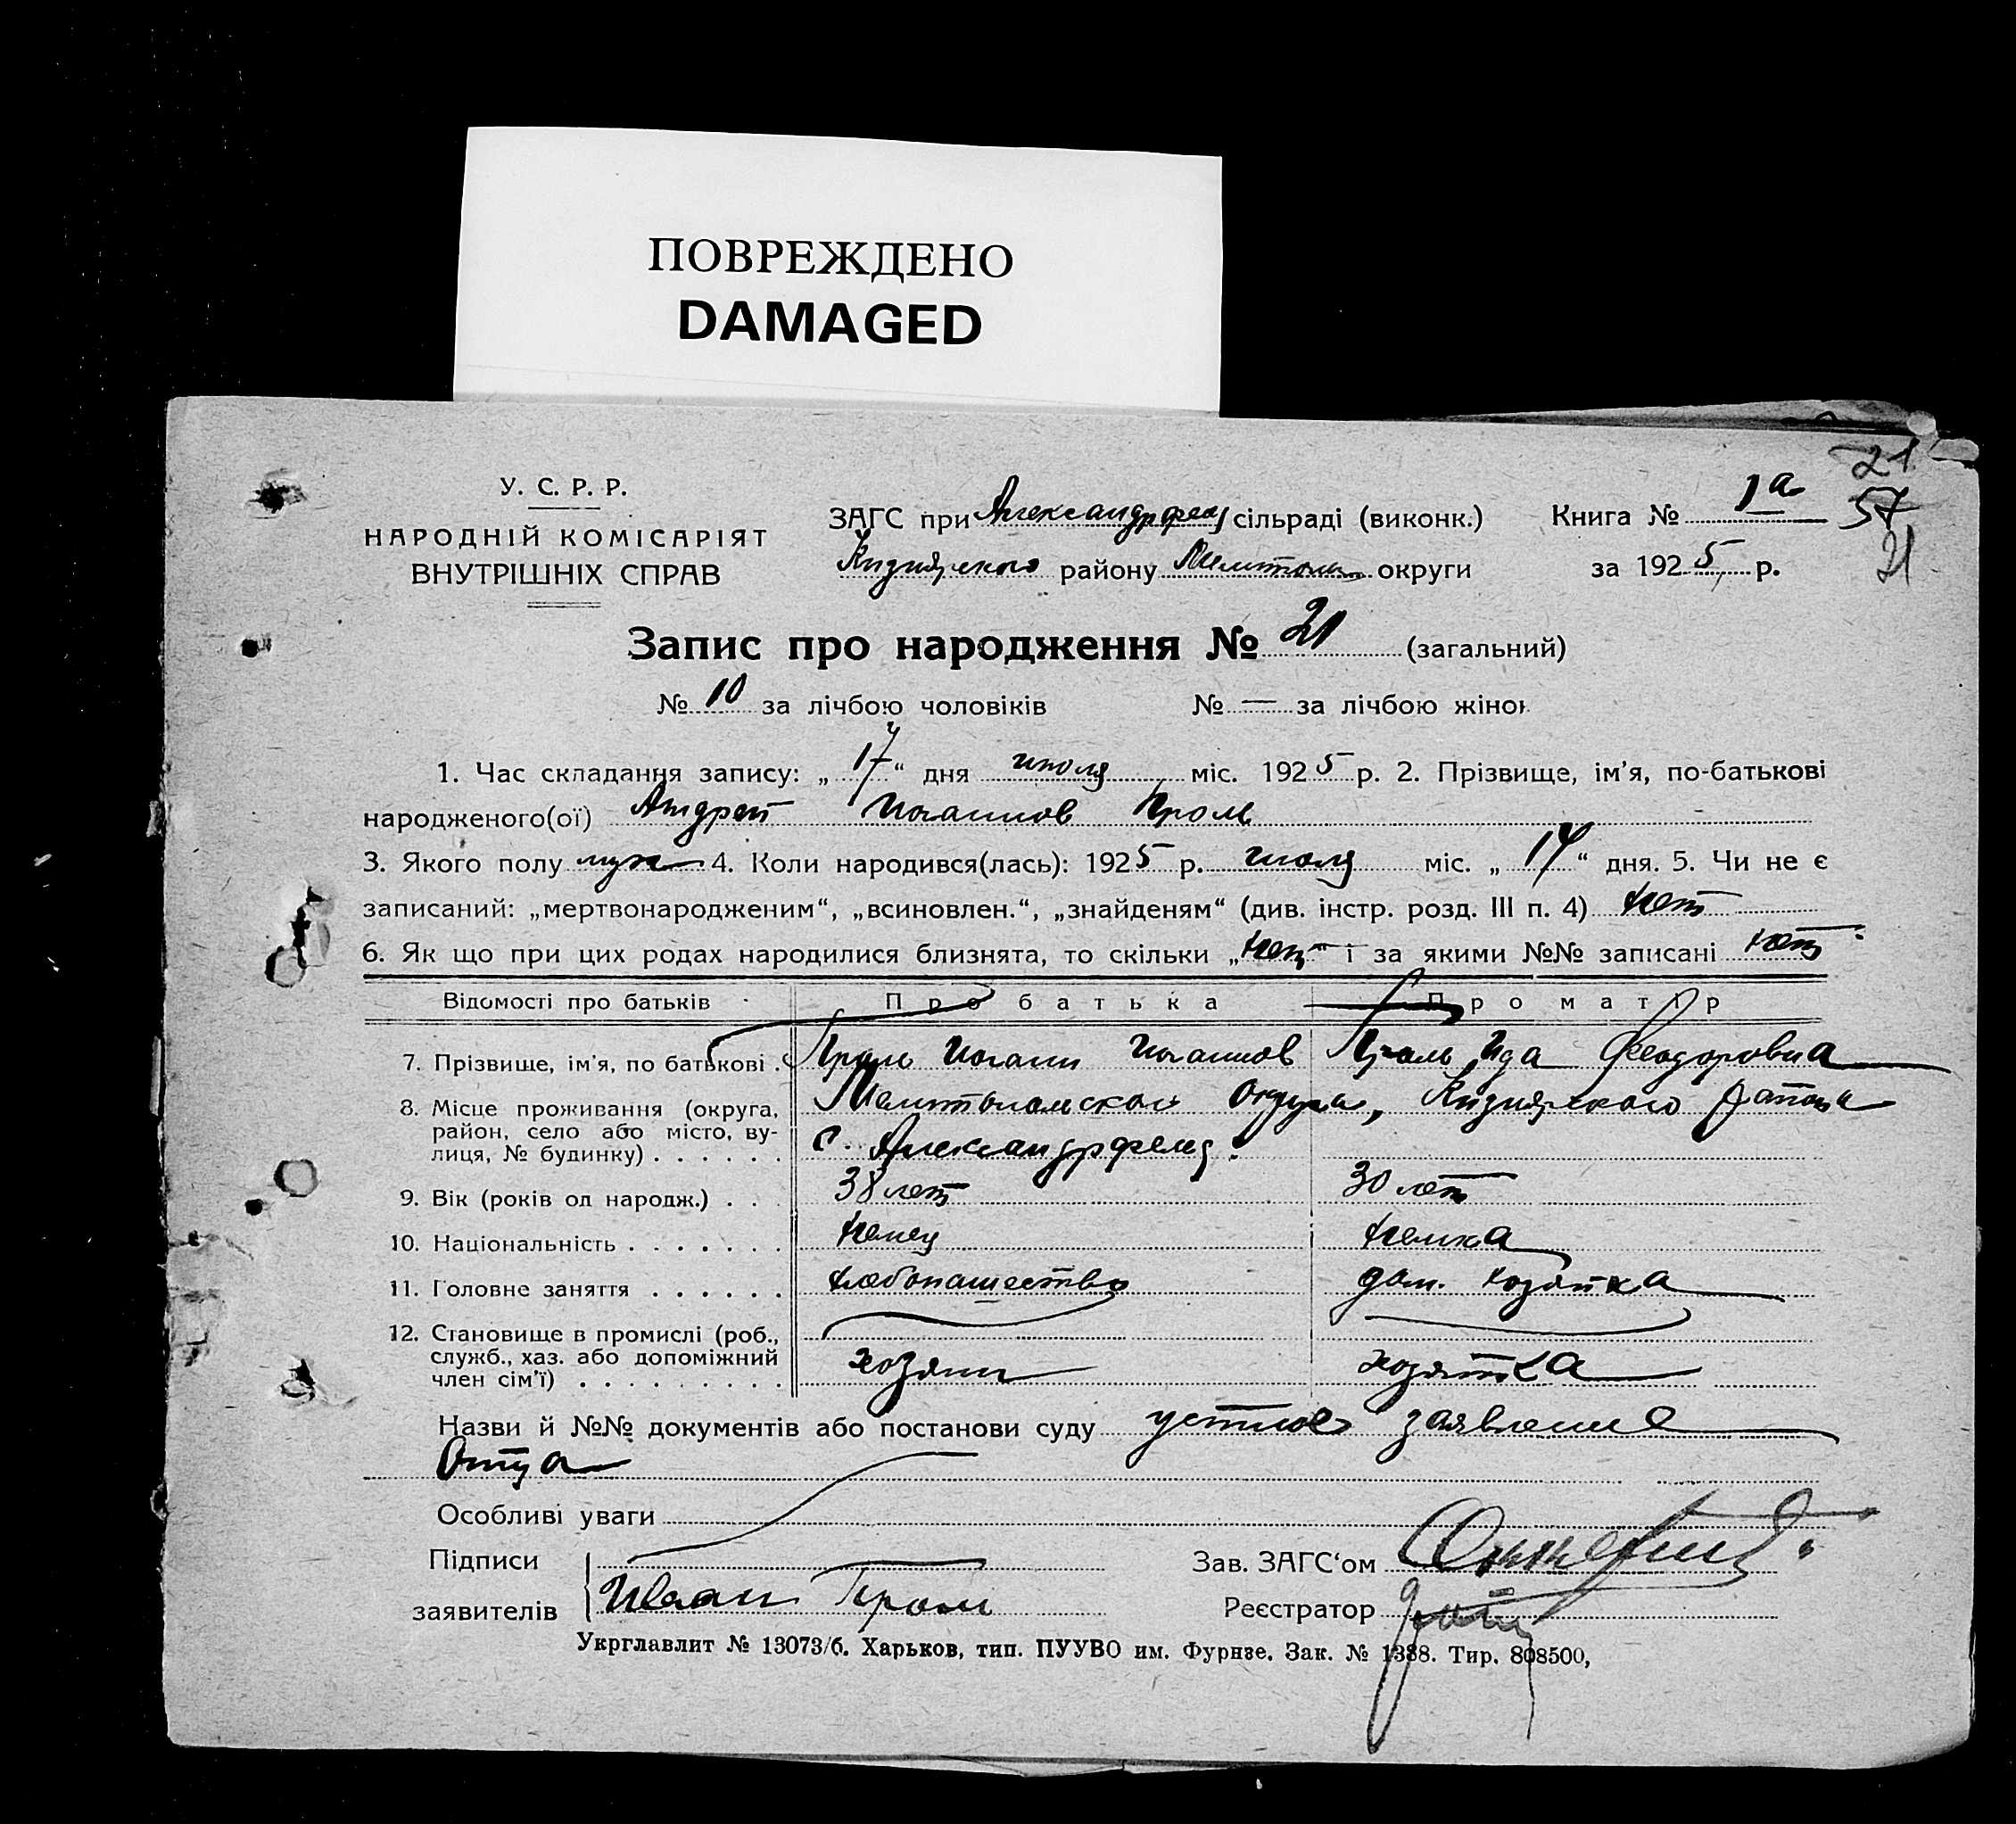 ПОВРЕЖДЕНО
DAMAGED
21
У. С. Р. Р.
НАРОДНІЙ КОМІСАРІЯТ
ВНУТРІШНІХ СПРАВ
ЗАГС при Александрфельд сільраді (виконк.)
Кизиярского району округи
Книга № 1а
57
за 1925 р.
21
Запис про народження № 21 (загальний)
№ 10 за лічбою чоловіків № — за лічбою жінок
1. Час складання запису: „17“ дня июля міс. 1925 р. 2. Прізвище, ім’я, по-батькові
народженого(ої) Андрей Иоганнов Кроль
3. Якого полу муж 4. Коли народився(лась): 1925 р. июля міс. „14“ дня. 5. Чи не є
записаний: „мертвонародженим“, „всиновлен.“, „знайденям“ (див. інстр. розд. III п. 4) нет
6. Як що при цих родах народилися близнята, то скільки „нет“ і за якими №№ записані нет
Відомості про батьків Про батька Про матір
7. Прізвище, ім’я, по батькові . Кроль Иоганн Иоганнов Кроль Ида Феодоровна
8. Місце проживання (округа, район, село або місто, вулиця, № будинку) . . . . . . Мелитопольской Округа, Кизиярского района
с. Александрфельд.
9. Вік (років од народж.) . . . 38 лет 30 лет
10. Національність . . . . . . . немец немка
11. Головне заняття . . . . . . хлебопашество дом. хозяйка
12. Становище в промислі (роб., служб., хаз. або допоміжний член сім’ї) . . . . . . . . . хозяин хозяйка
Назви й №№ документів або постанови суду устное заявление
Отца
Особливі уваги
Підписи
заявителів Иван Кроль
Зав. ЗАГС‘ом
Реєстратор
Укрглавлит № 13073/б. Харьков, тип. ПУУВО им. Фурнзе. Зак. № 1388. Тир. 808500,